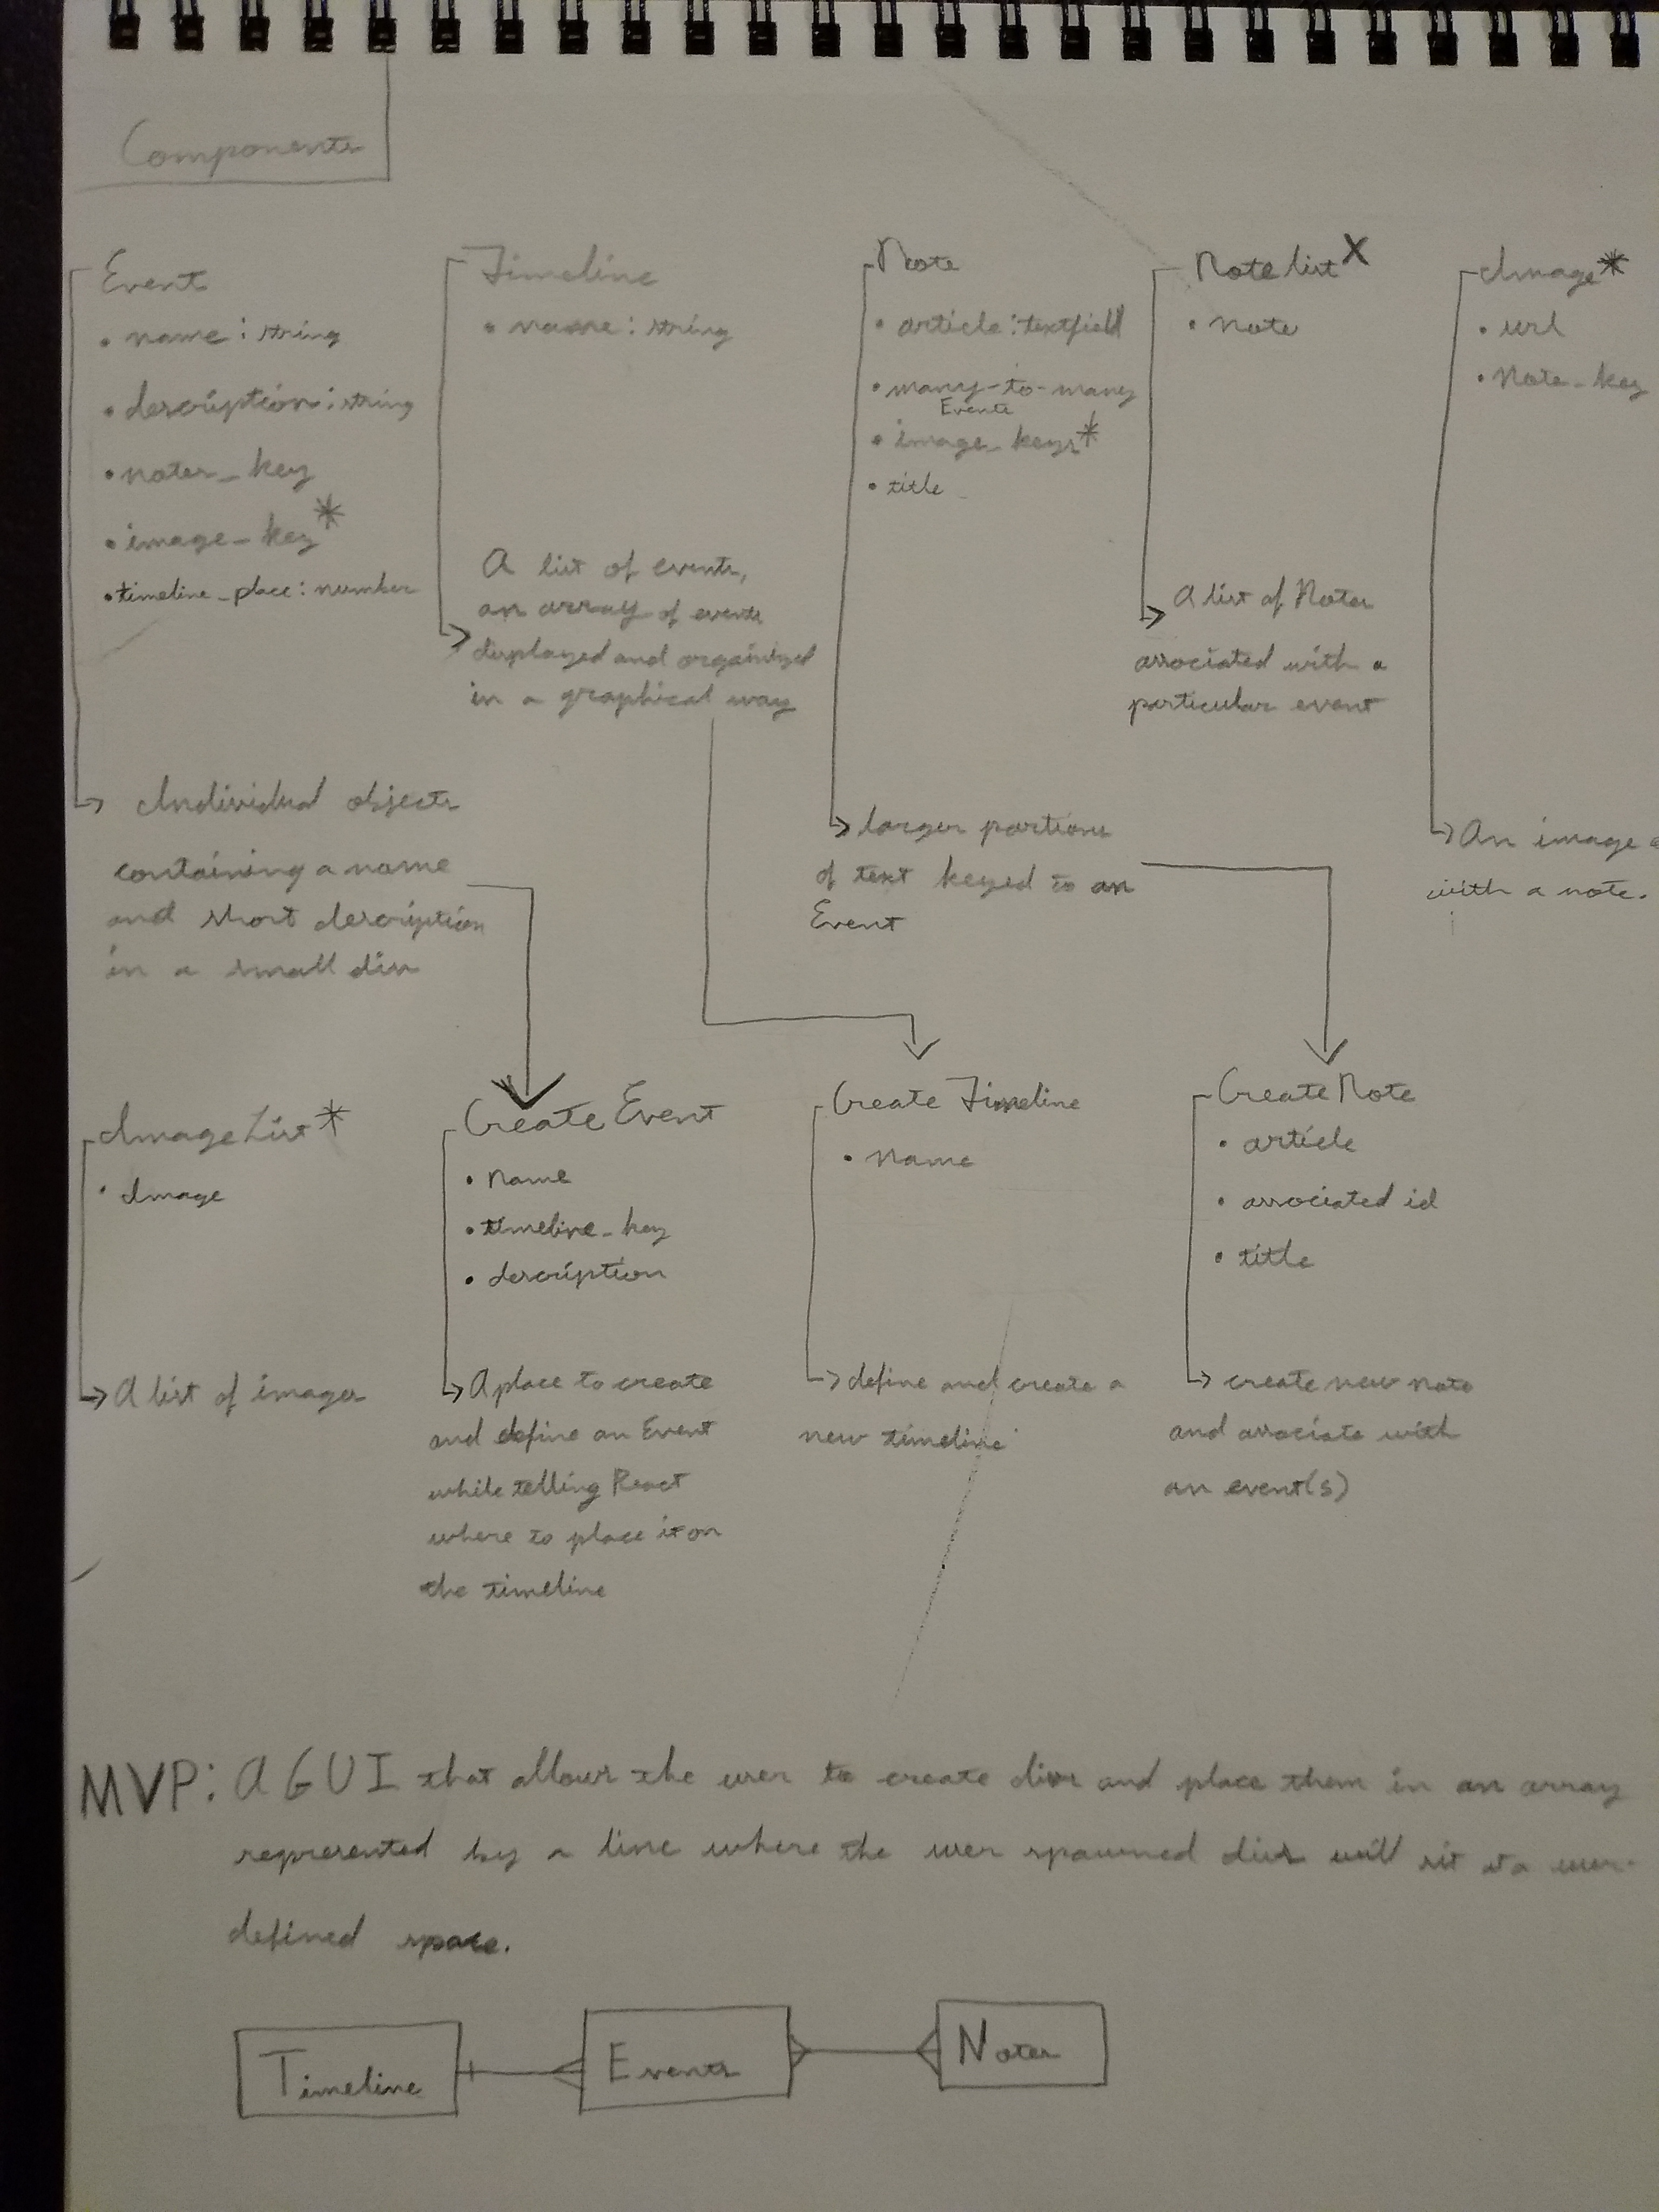 Components
Event
• name : string
• description : string
• notes_key
• image_key*
• timeline_place : number
Individual objects
containing a name
and short description
in a small div
Timeline
• name : string
A list of events,
an array of events
displayed and organized
in a graphical way
Note
• article : textfield
• many-to-many
Events
• image_keys*
• title
larger portions
of text keyed to an
Event
Note list X
• note
A list of Notes
associated with a
particular event
Image*
• url
• Note_key
An image
with a note.
Image List*
• Image
A list of images
Create Event
• name
• timeline_key
• description
A place to create
and define an Event
while telling React
where to place it on
the timeline
Create Timeline
• name
define and create a
new timeline
Create Note
• article
• associated id
• title
create new note
and associate with
an event(s)
MVP: A GUI that allows the user to create divs and place them in an array
represented by a line where the user spawned divs will sit at a user-
defined space.
Timeline
Events
Notes